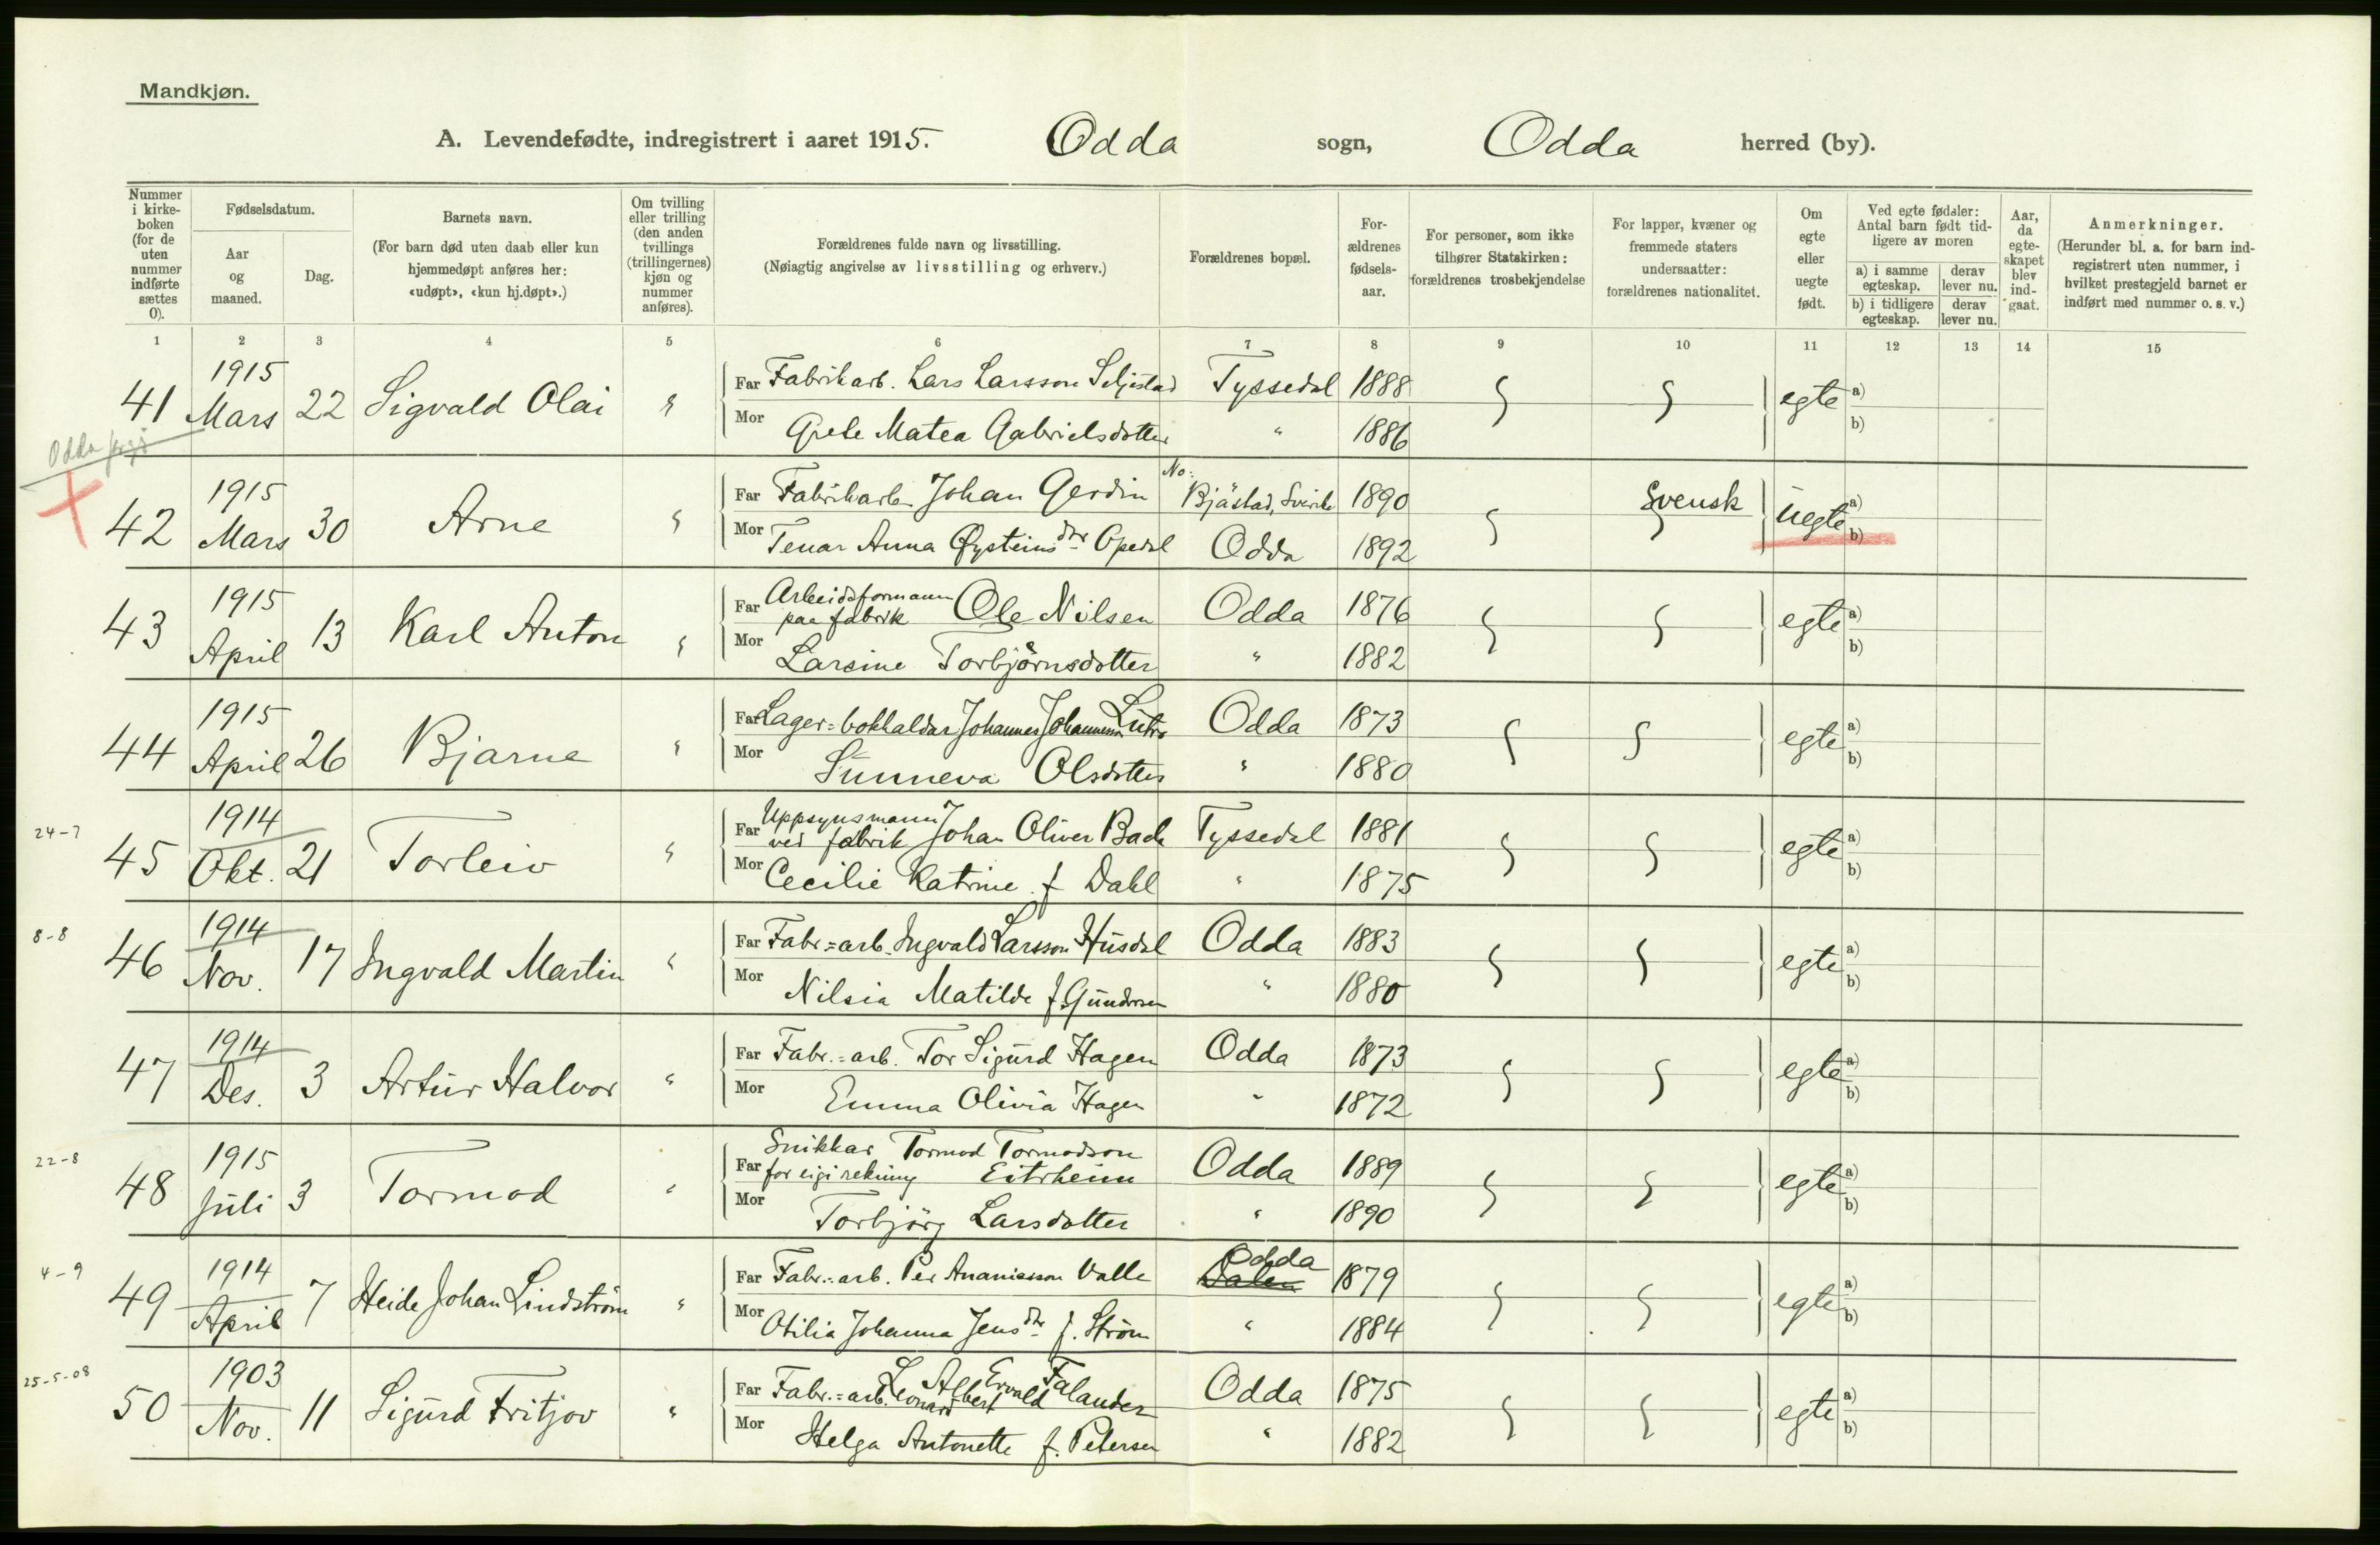 Mandkjøn.
A. Levendefødte, indregistrert i aaret 1915. Odda sogn, Odda herred (by).
Nummer i kirke-boken (for de uten nummer indførte sættes 0).
Fødselsdatum.
Aar og maaned.
Dag.
Barnets navn.
(For barn død uten daab eller kun hjemmedøpt anføres her: «udøpt», «kun hj.døpt».)
Om tvilling eller trilling (den anden tvillings (trillingernes) kjøn og nummer anføres).
Forældrenes fulde navn og livsstilling.
(Nøiagtig angivelse av livsstilling og erhverv.)
Forældrenes bopæl.
For-ældrenes fødsels-aar.
For personer, som ikke tilhører Statskirken: forældrenes trosbekjendelse
For lapper, kvæner og fremmede staters undersaatter: forældrenes nationalitet.
Om egte eller uegte født.
Ved egte fødsler: Antal barn født tid-ligere av moren
a) i samme egteskap.
derav lever nu.
b) i tidligere egteskap.
derav lever nu.
Aar, da egte-skapet blev ind-gaat.
Anmerkninger.
(Herunder bl. a. for barn ind-registrert uten nummer, i hvilket prestegjeld barnet er indført med nummer o. s. v.)
1 2 3 4 5 6 7 8 9 10 11 12 13 14 15
41 1915 Mars 22 Sigvald Olai " Far Fabrikarb. Lars Larsson Seljestad Tyssedal 1888 egte a)
Mor Grete Matea Gabrielsdotter " 1886 b)
Odda
42 1915 Mars 30 Arne " Far Fabrikarb. Johan Gerdin No: Bjästad, Sverike 1890 Svensk uegte a)
Mor Tenar Anna Øysteinsdtr Opedal Odda 1892 b)
43 1915 April 13 Karl Anton " Far Arbeidsformann paa fabrik Ole Nilsen Odda 1876 egte a)
Mor Larsine Torbjörnsdotter " 1882 b)
44 1915 April 26 Bjarne " Far Lager=bokhaldar Johannes Johannesson Lutro Odda 1873 egte a)
Mor Sunneva Olsdotter " 1880 b)
24-7
45 1914 Okt. 21 Torleiv " Far Uppsynsmann ved fabrik Johan Oliver Bach Tyssedal 1881 egte a)
Mor Cecilie Katrine f Dahl " 1875 b)
8-8
46 1914 Nov. 17 Ingvald Martin " Far Fabr=arb. Ingvald Larsson Husdal Odda 1883 egte a)
Mor Nilsia Matilde f. Gundersen " 1880 b)
47 1914 Des. 3 Artur Halvor " Far Fabr.=arb. Tor Sigurd Hagen Odda 1873 egte a)
Mor Emma Olivia Hagen " 1872 b)
22-8
48 1915 Juli 3 Tormod " Far Snikkar for eigi rekning Tormod Tormodson Eitrheim Odda 1889 egte a)
Mor Torbjörg Larsdotter " 1890 b)
4-9
49 1914 April 7 Heide Johan Lindström " Far Fabr.=arb. Per Ananiasson Valle Dalen Odda 1879 egte a)
Mor Otilia Johanna Jensdtr f. Ström " 1884 b)
25-5-08
50 1903 Nov. 11 Sigurd Fritjov " Far Fabr.=arb. Leonard Albert Ervald Falander Odda 1875 egte a)
Mor Helga Antonette f. Petersen " 1882 b)